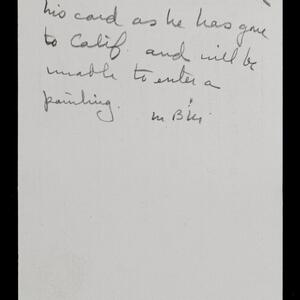 his card as he has gone
to Calif. and will be
unable to enter a
painting.